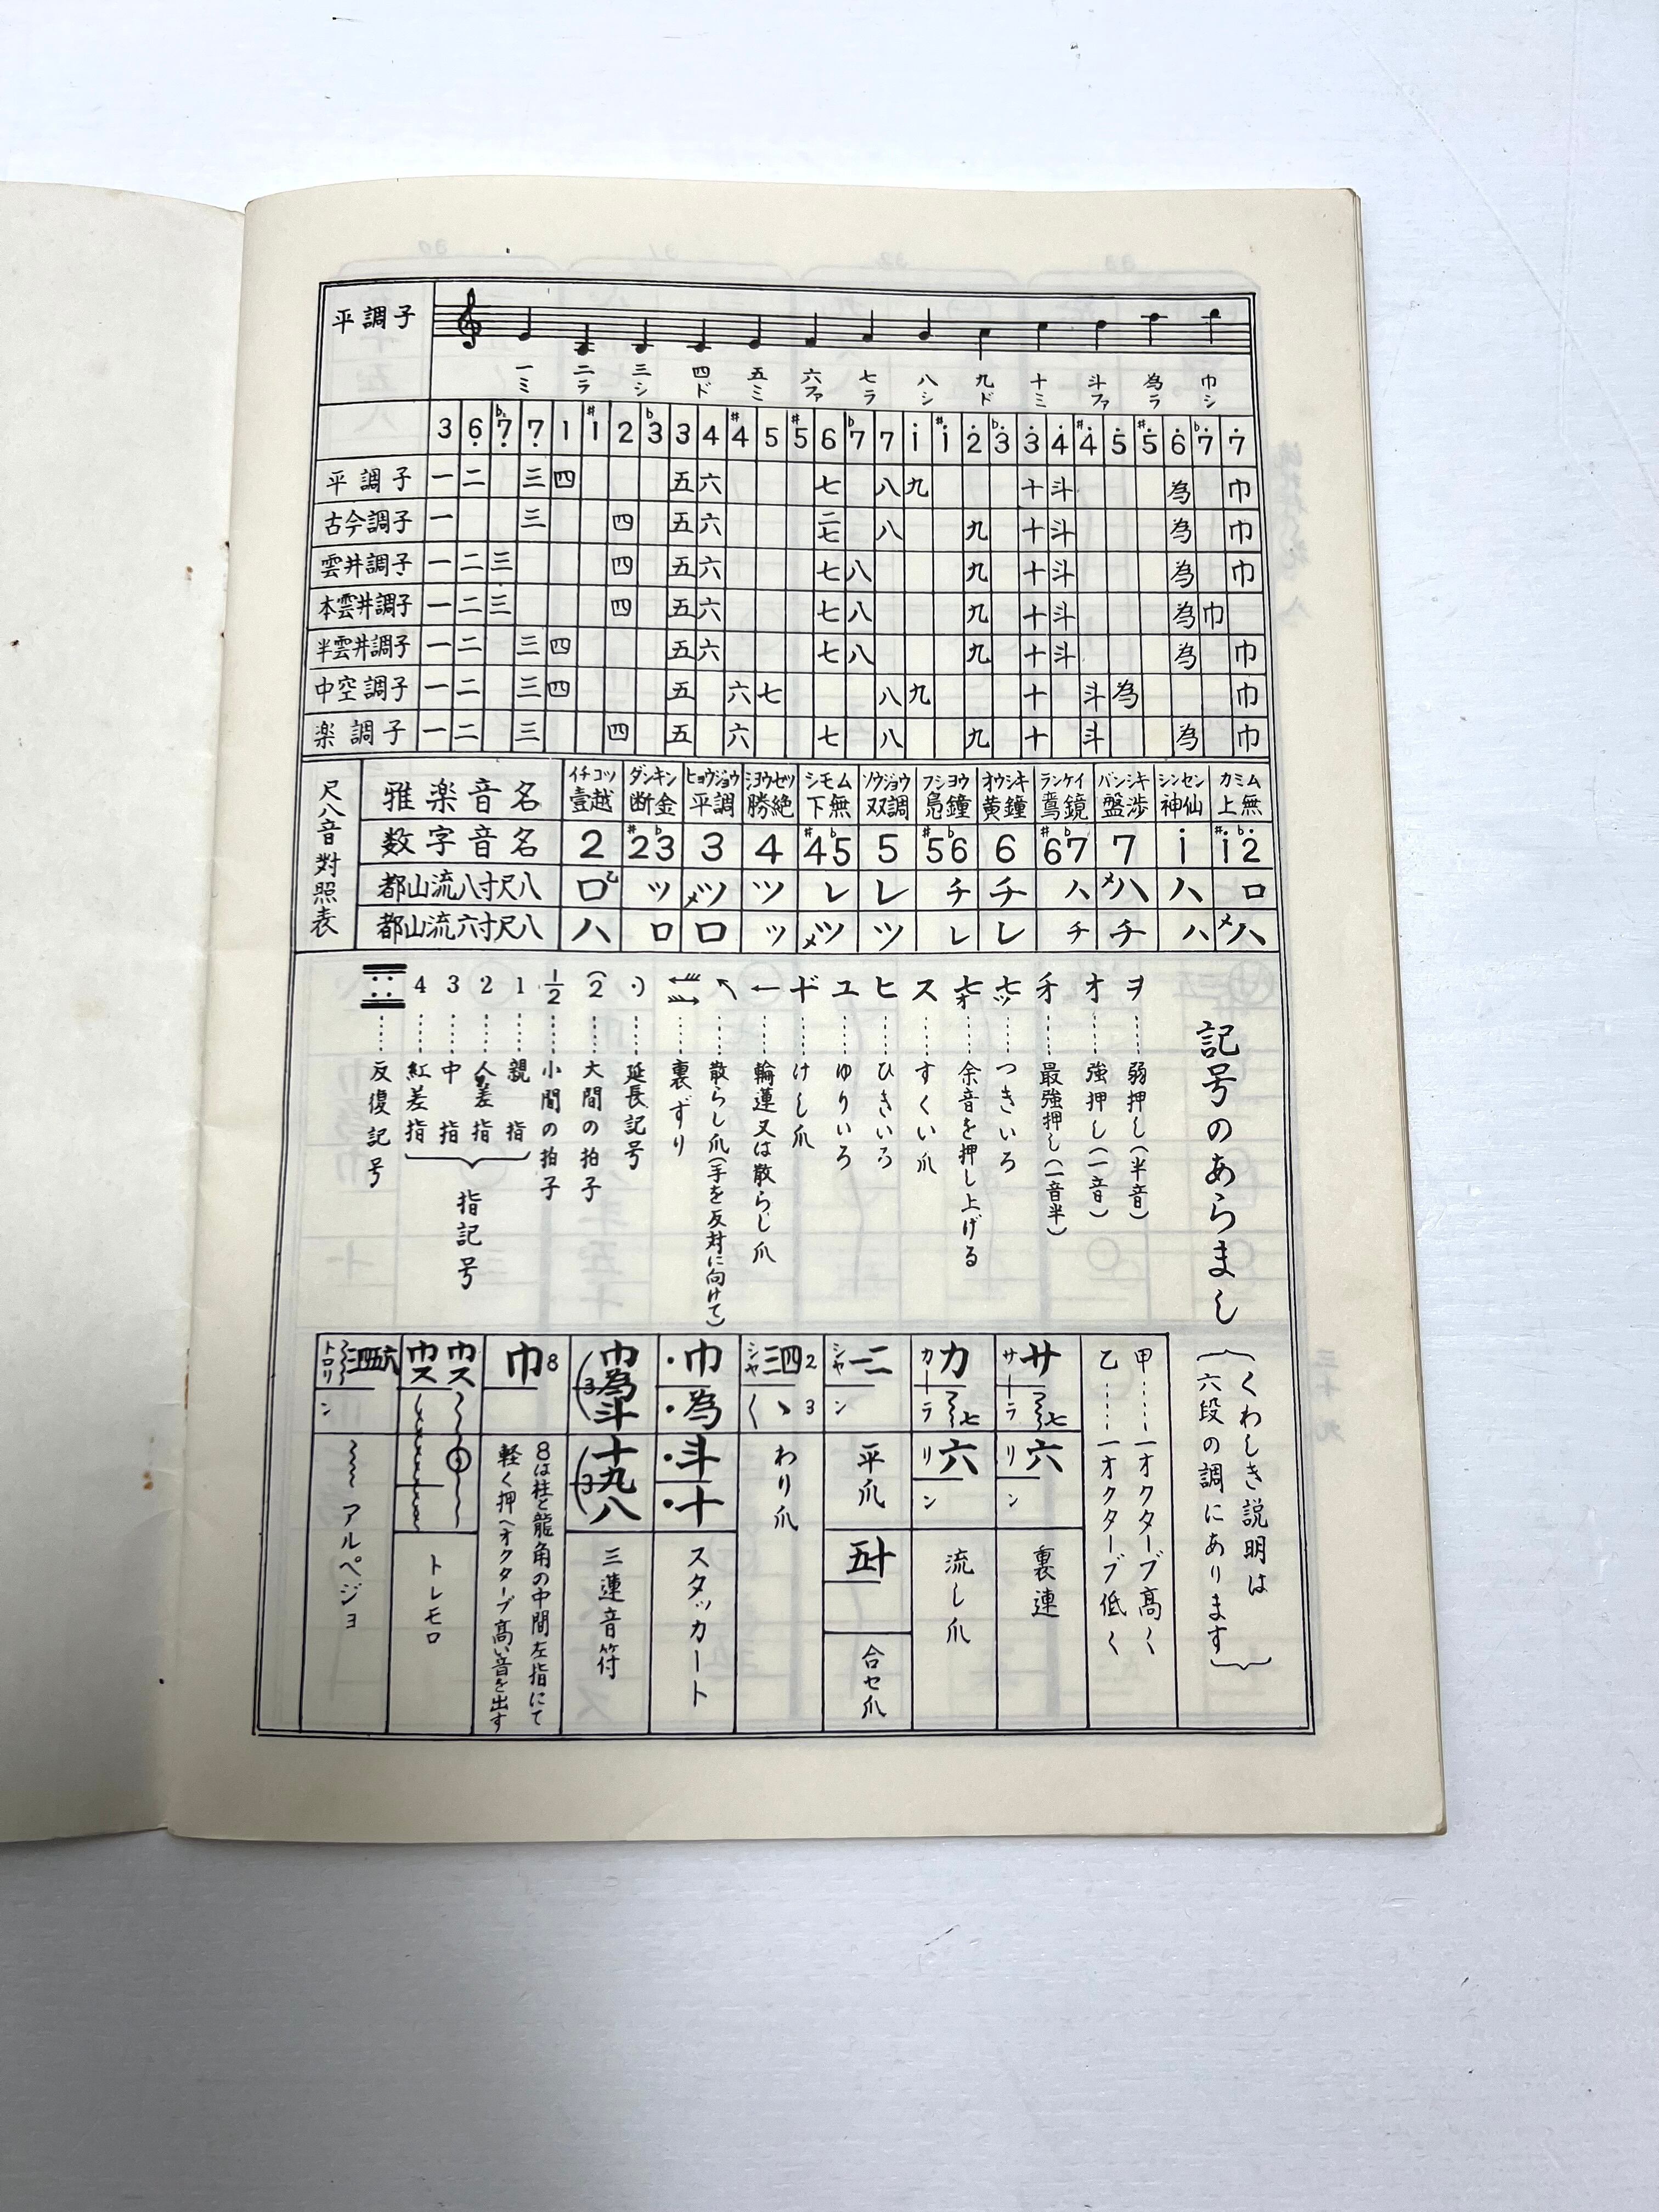 平調子
一ミ 二ラ 三シ 四ド 五ミ 六ファ 七ラ 八シ 九ド 十ミ 斗ファ 為ラ 巾シ
3 6̣ ♭7̣ 7̣ 1 ♯1 2 ♭3 3 4 ♯4 5 ♯5 6 ♭7 7 1̇ ♯1̇ 2̇ ♭3̇ 3̇ 4̇ ♯4̇ 5̇ ♯5̇ 6̇ ♭7̇ 7̇
平調子 一 二 三 四 五 六 七 八 九 十 斗 為 巾
古今調子 一 三 四 五 六 二七 八 九 十 斗 為 巾
雲井調子 一 二 三 四 五 六 七 八 九 十 斗 為 巾
本雲井調子 一 二 三 四 五 六 七 八 九 十 斗 為 巾
半雲井調子 一 二 三 四 五 六 七 八 九 十 斗 為 巾
中空調子 一 二 三 四 五 六 七 八 九 十 斗 為 巾
楽調子 一 二 三 四 五 六 七 八 九 十 斗 為 巾
尺八音対照表
雅楽音名 イチコツ壹越 ダンキン断金 ヒョウジョウ平調 ショウゼツ勝絶 シモム下無 ソウジョウ双調 フショウ鳧鐘 オウシキ黄鐘 ランケイ鸞鏡 バンシキ盤渉 シンセン神仙 カミム上無
数字音名 2 ♯2♭3 3 4 ♯4♭5 5 ♯5♭6 6 ♯6♭7 7 1̇ ♯1̇♭2̇
都山流八寸尺八 ロ乙 ツ メツ ツ レ レ チ チ ハ メハ ハ ロ
都山流六寸尺八 ハ ロ ロ ツ メツ ツ レ レ チ チ ハ メハ
記号のあらまし
(くわしき説明は
六段の調にあります)
ヲ……弱押し(半音)
オ……強押し(一音)
……最強押し(一音半)
七ッ……つきいろ
七オ……余音を押し上げる
ス……すくい爪
ヒ……ひきいろ
ユ……ゆりいろ
……けし爪
←……輪連又は散らし爪
↖……散らし爪(手を反対に向けて)
……裏ずり
……延長記号
(2……大間の拍子
1/2……小間の拍子
1……親指
2……人差指
3……中指
4……紅差指
指記号
……反復記号
甲……一オクターブ高く
乙……一オクターブ低く
サ 七 六
サーラリン
裏連
カ 七 六
カーラリン
流し爪
一二
シャン
平爪
五十
合セ爪
三四 2
シャ
く ヽ 3
わり爪
・巾・為・斗・十
スタッカート
巾為斗 (3
十九八 (3
三連音符
巾8
8は柱と龍角の中間左指にて
軽く押へオクターブ高い音を出す
巾ス
巾ス
トレモロ
三四五六
トロリン
アルペジョ